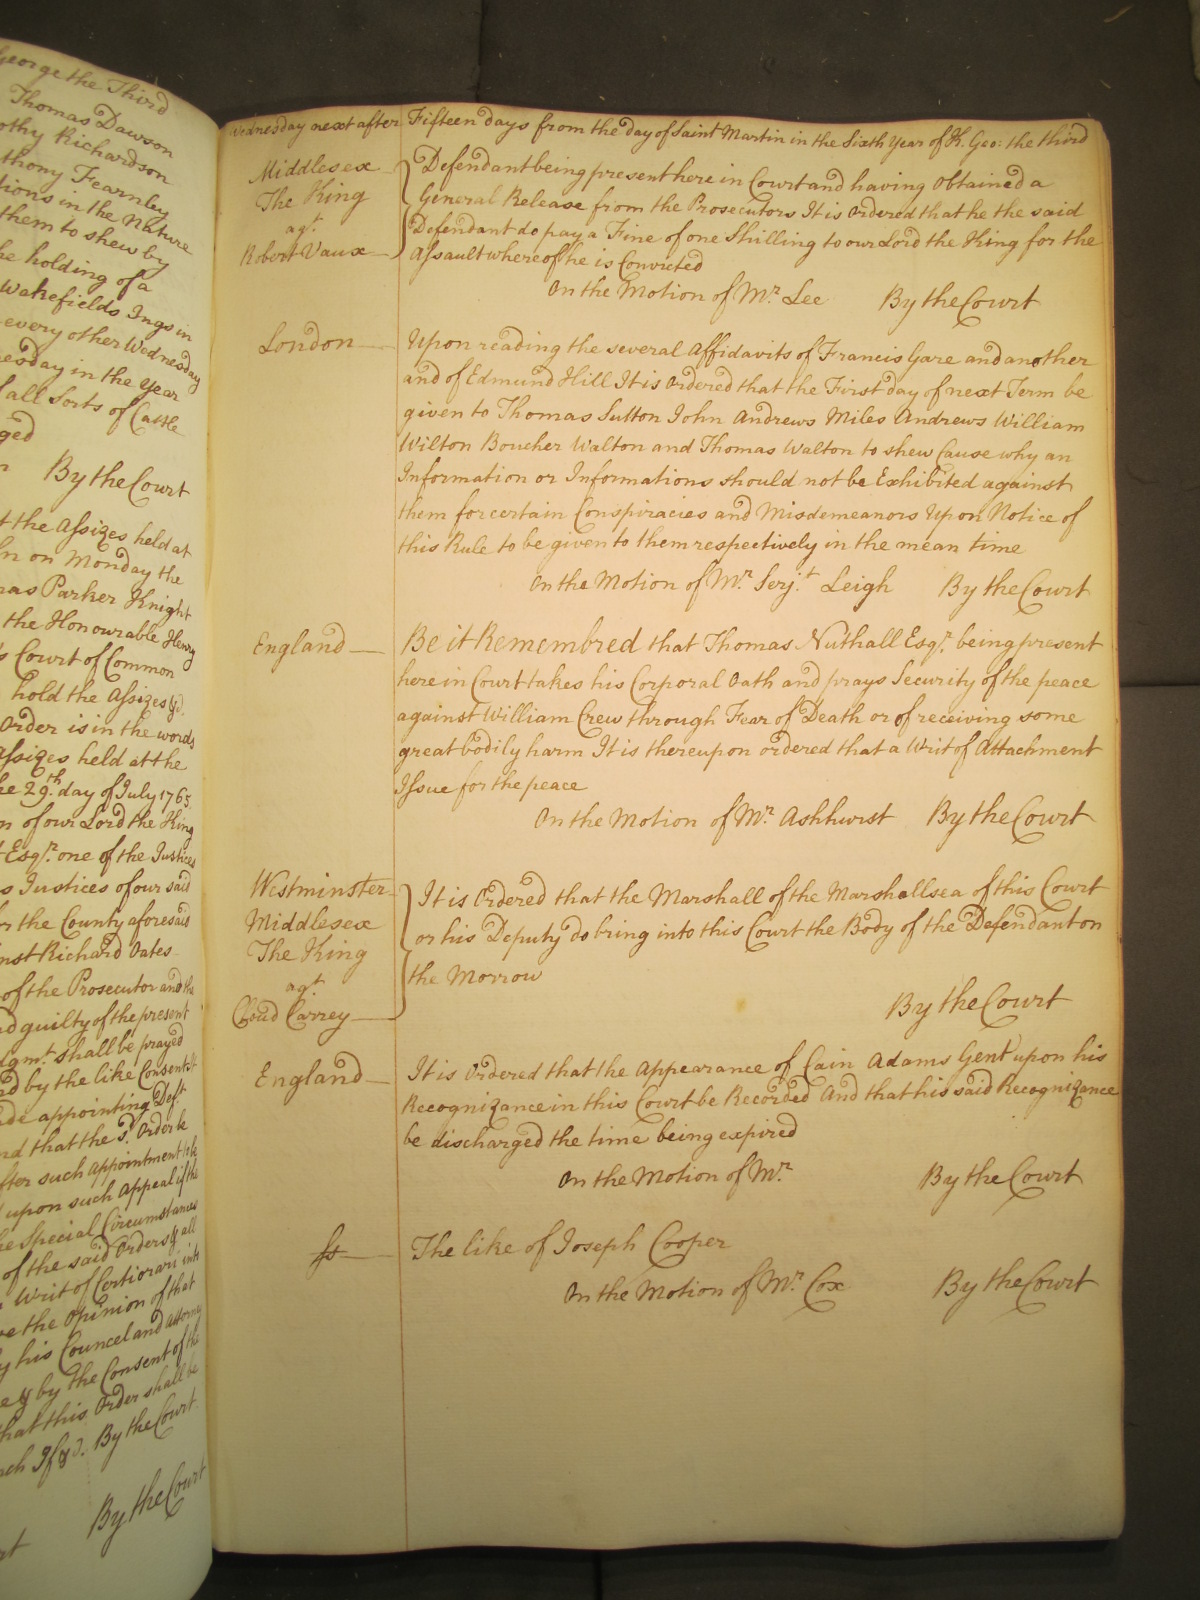 George the Third
Thomas Dawson
othy Richardson
thony Fearnley
tions in the Nature
them to shew by
he holding of a
Wakefields Ings in
every other Wednesday
nesday in the Year
f all Sorts of Cattle
ged
By the Court
t the Assizes held at
on Monday the
mas Parker Knight
the Honourable Henry
s Court of Common
hold the Assizes &c.
Order is in the words
Assizes held at the
he 29.th day of July 1765
n of our Lord the King
Esqr. one of the Justices
s Justices of our said
r the County aforesaid
inst Richard Oates
of the Prosecutor and the
d guilty of the present
dgmt. shall be prayed
d by the like Consent It
ade appointing Deft.
nd that the sd. Order be
fter such appointment to be
upon such Appeal if the
he Special Circumstances
of the said Orders & all
Writ of Certiorari into
ve the Opinion of that
y his Councel and attorney
e & by the Consent of the
that this Order shall be
By the Court
By the Court
Wednesday next after Fifteen days from the day of Saint Martin in the Sixth Year of K. Geo: the third
Middlesex
The King
agt.
Robert Vaux
Defendant being present here in Court and having Obtained a
General Release from the Prosecutors It is Ordered that he the said
Defendant do pay a Fine of one Shilling to our Lord the King for the
Assault whereof he is Convicted
On the Motion of Mr. Lee By the Court
London
Upon reading the several Affidavits of Francis Gare and another
and of Edmund Hill It is Ordered that the First day of next Term be
given to Thomas Sutton John Andrews Miles Andrews William
Wilton Boucher Walton and Thomas Walton to shew Cause why an
Information or Informations should not be Exhibited against
them for certain Conspiracies and Misdemeanors Upon Notice of
this Rule to be given to them respectively in the mean time
On the Motion of Mr. Serjt. Leigh By the Court
England
Be it Remembred that Thomas Nuthall Esqr. being present
here in Court takes his Corporal Oath and prays Security of the peace
against William Crew through Fear of Death or of receiving some
great bodily harm It is thereupon ordered that a Writ of Attachment
Issue for the peace
On the Motion of Mr. Ashhurst By the Court
Westminster
Middlesex
The King
agt.
Cloud Carrey
It is Ordered that the Marshall of the Marshallsea of this Court
or his Deputy do bring into this Court the Body of the Defendant on
the Morrow
By the Court
England
It is Ordered that the Appearance of Cain Adams Gent upon his
Recognizance in this Court be Recorded And that his said Recognizance
be discharged the time being expired
On the Motion of Mr. By the Court
ss
The like of Joseph Cooper
On the Motion of Mr. Cox By the Court